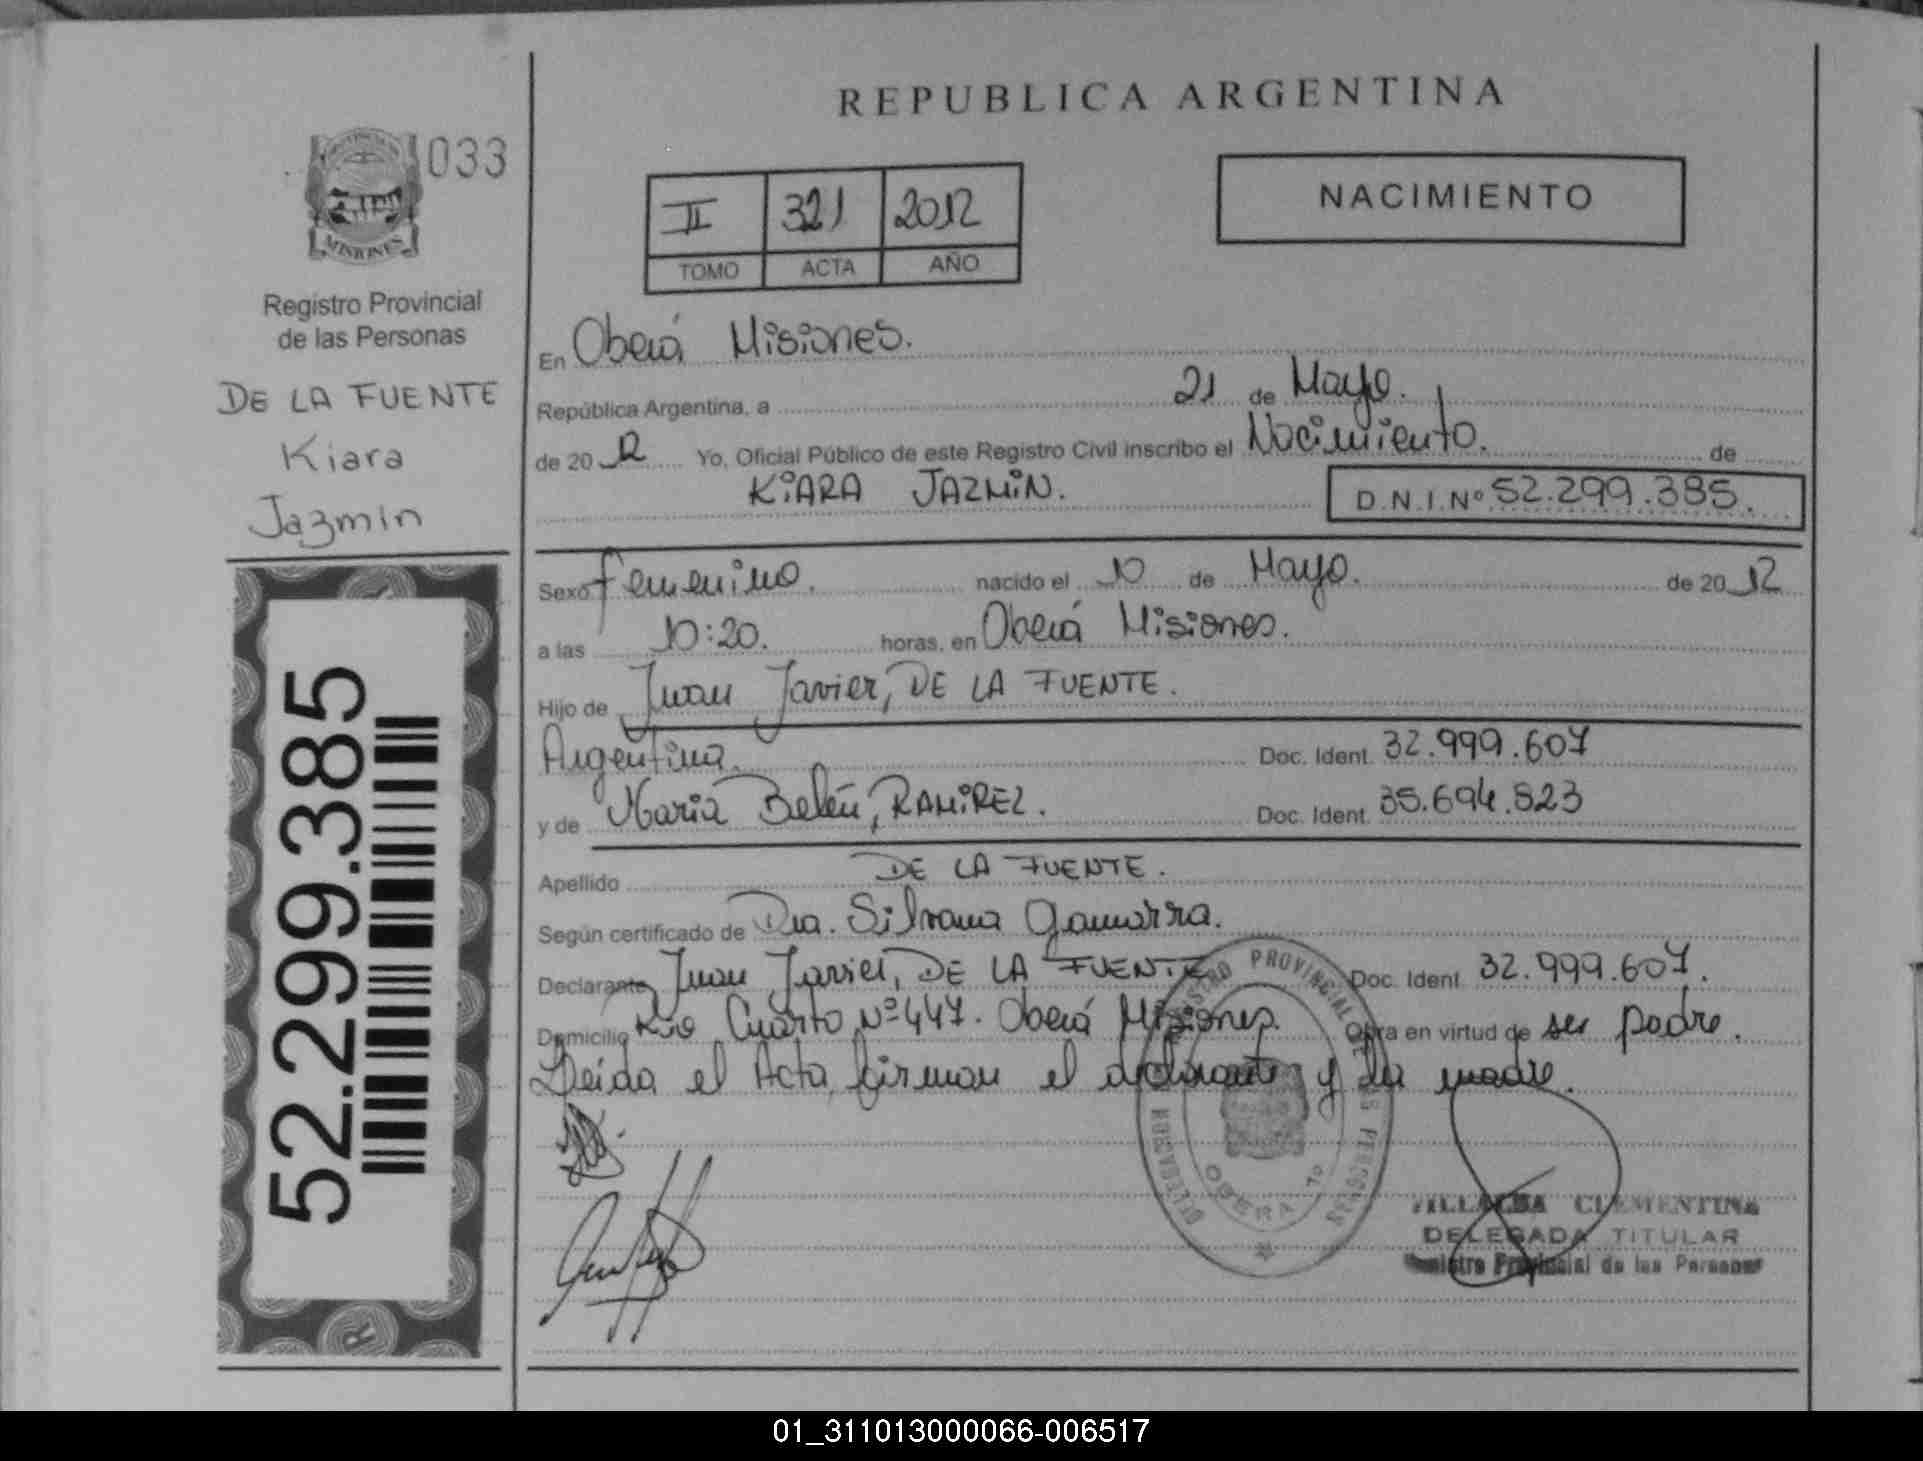 REPUBLICA ARGENTINA
033
MISIONES
Registro Provincial
de las Personas
DE LA FUENTE
Kiara
Jazmin
52.299.385
II 321 2012
TOMO ACTA AÑO
NACIMIENTO
En Oberá Misiones.
República Argentina, a 21 de Mayo.
de 2012 Yo, Oficial Público de este Registro Civil inscribo el Nacimiento. de
KIARA JAZMIN. D.N.I.Nº 52.299.385.
Sexo Femenino. nacido el 10 de Mayo. de 2012
a las 10:20. horas, en Oberá Misiones.
Hijo de Juan Javier, DE LA FUENTE.
Argentina. Doc. Ident. 32.999.607
y de Maria Belén, RAMIREZ. Doc. Ident. 35.694.823
Apellido DE LA FUENTE.
Según certificado de Dra. Silvana Gamarra.
Declarante Juan Javier, DE LA FUENTE Doc. Ident. 32.999.607.
Domicilio Río Cuarto Nº 447. Oberá Misiones. Obra en virtud de ser padre.
Leída el Acta, firman el declarante y la madre.
REGISTRO PROVINCIAL DE LAS PERSONAS
DELEGACION
OBERA 1º
VILLALBA CLEMENTINA
DELEGADA TITULAR
Registro Provincial de las Personas
R
01_311013000066-006517